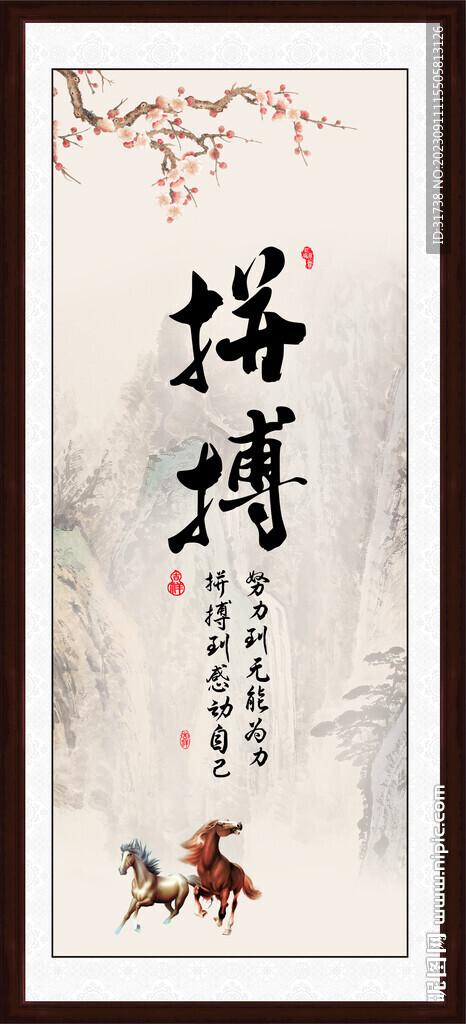 拼搏
努力到无能为力
拼搏到感动自己
ID:31738 NO:20230911115505813126
昵图网 www.nipic.com